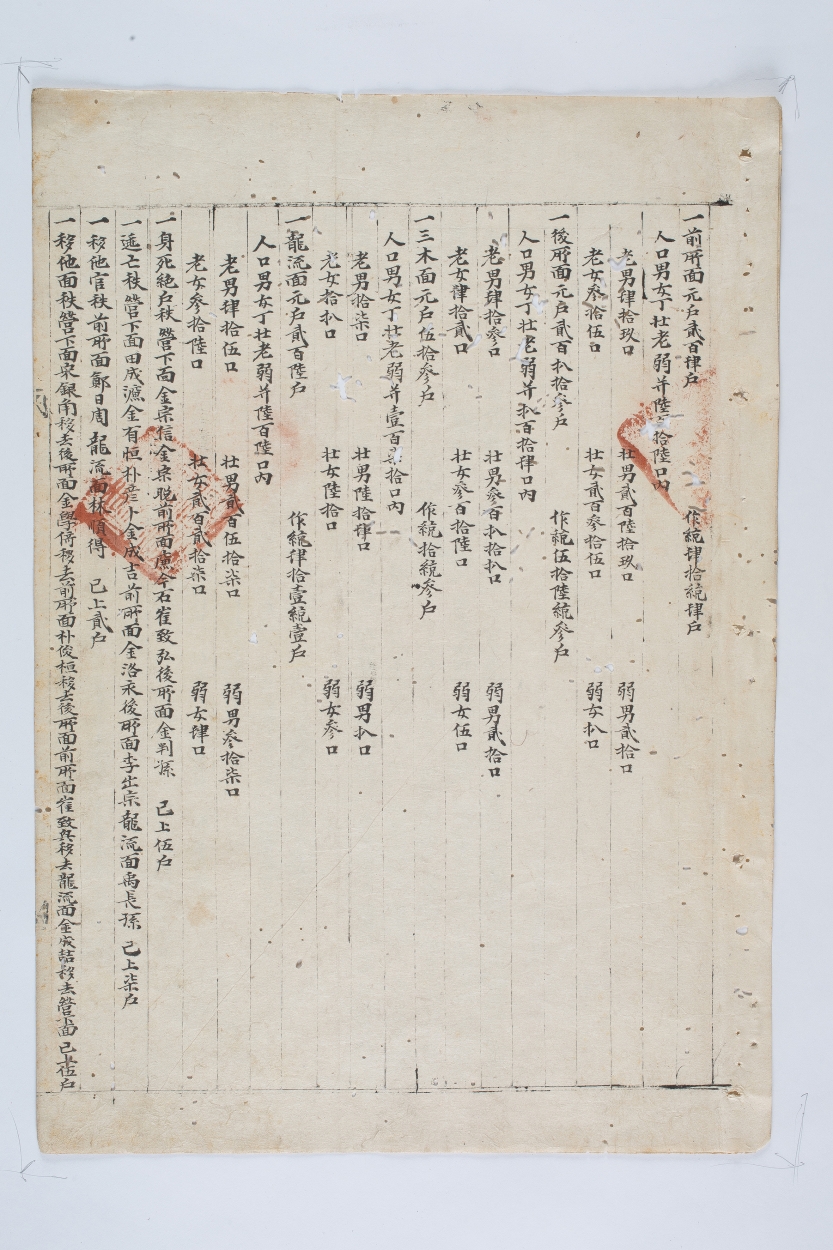 一前所面元戶貳百肆戶 作統肆拾統肆戶
人口男女丁壯老弱并陸百拾陸口內
老男肆拾玖口 壯男貳百陸拾玖口 弱男貳拾口
老女參拾伍口 壯女貳百參拾伍口 弱女捌口
一後所面元戶貳百捌拾參戶 作統伍拾陸統參戶
人口男女丁壯老弱并捌百拾肆口內
老男肆拾參口 壯男參百捌拾捌口 弱男貳拾口
老女肆拾貳口 壯女參百拾陸口 弱女伍口
一三木面元戶伍拾參戶 作統拾統參戶
人口男女丁壯老弱并壹百柒拾口內
老男拾柒口 壯男陸拾肆口 弱男捌口
老女拾捌口 壯女陸拾口 弱女參口
一龍流面元戶貳百陸戶 作統肆拾壹統壹戶
人口男女丁壯老弱并陸百陸口內
老男肆拾伍口 壯男貳百伍拾柒口 弱男參拾柒口
老女參拾陸口 壯女貳百貳拾柒口 弱女肆口
一身死絶戶秩營下面金宗信金宗脫前所面 今石崔致弘後所面金判孫 已上伍戶
一逃亡秩營下面田成 金有恒朴彦卜金成吉前所面金洛永後所面李出宗龍流面禹長孫 已上柒戶
一移他官秩前所面鄭日周龍流面林順得 已上貳戶
一移他面秩營下面 銀角移去後所面金學倚移去前所面朴俊桓移去後所面前所面崔致兵移去龍流面金成喆移去營下面 已上伍戶